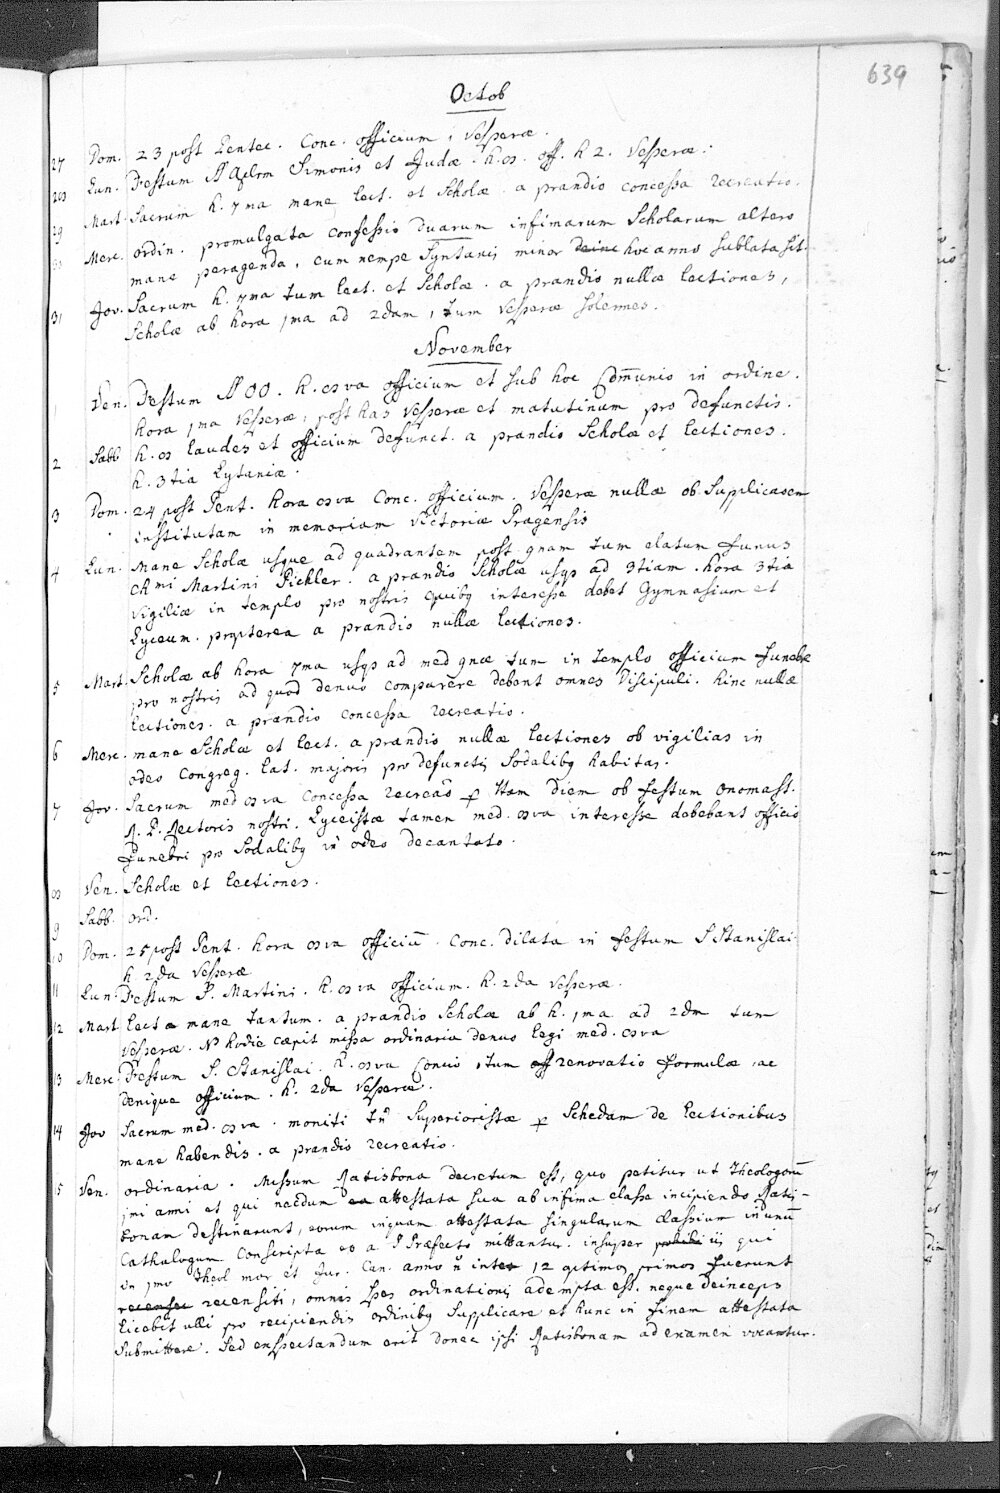 639
Octob
27 Dom. 23 post Pentec. Conc. officium, Vesperæ.
28 Lun. Festum SS Aplrm Simonis et Judæ. h. 8. off. h 2. Vesperæ.
29 Mart. Sacrum h. 7ma mane, lect. et Scholæ. a prandio concessa recreatio.
30 Merc. ordin. promulgata confessio duarum infimarum Scholarum altero
mane peragenda, cum nempe Syntaxis minor deinc hoc anno sublata sit
31 Jov. Sacrum h. 7ma tum lect. et Scholæ. a prandio nullæ lectiones,
Scholæ ab hora 1ma ad 2dam, tum Vesperæ solemnes.
November
1 Ven. Festum SS OO. h. 8va officium et sub hoc Com̅unio in ordine.
hora 1ma Vesperæ, post has Vesperæ et matutinum pro defunctis.
2 Sabb h. 8 laudes et officium defunct. a prandio Scholæ et lectiones.
h. 3tia Lytaniæ.
3 Dom. 24 post Pent. hora 8va Conc. officium. Vesperæ nullæ ob Supplicaōem
institutam in memoriam Victoriæ Pragensis
4 Lun. Mane Scholæ usque ad quadrantem post 9nam tum elatum funus
chmi Martini Pichler. a prandio Scholæ usqȝ ad 3tiam. hora 3tia
Vigiliæ in templo pro nostris quibȝ interesse debet Gymnasium et
Lyceum. propterea a prandio nullæ lectiones.
5 Mart. Scholæ ab hora 7ma usqȝ ad med 9næ tum in templo officium funebre
pro nostris ad quod denuo comparere debent omnes Discipuli. hinc nullæ
lectiones. a prandio concessa recreatio.
6 Merc. mane Scholæ et lect. a prandio nullæ lectiones ob vigilias in
odeo Congreg. Lat. majoris pro defunctis Sodalibȝ habitas.
7 Jov. Sacrum med 8va concessa recreaō p ttam diem ob festum onomast.
R. P. Rectoris nostri. Lyceistæ tamen med. 8va interesse debebant officio
funebri pro Sodalibȝ in odeo decantato.
8 Ven. Scholæ et lectiones.
9 Sabb. ord.
10 Dom. 25 post Pent. hora 8va officiū. Conc. dilata in festum S Stanislai
h 2da Vesperæ
11 Lun. Festum S. Martini. h. 8va officium. h. 2da Vesperæ.
12 Mart lectæ mane tantum. a prandio Scholæ ab h. 1ma ad 2dm tum
Vesperæ. NB hodie cæpit missa ordinaria denuo legi med. 8va
13 Merc. Festum S. Stanislai. h. 8va Concio, tum off renovatio formulæ, ac
denique officium. h. 2da Vesperæ.
14 Jov Sacrum med. 8va. moniti tn̄ Superioristæ p Schedam de lectionibus
mane habendis. a prandio recreatio.
15 Ven. ordinaria. Missum Ratisbona decretum est, quo petitur ut Theologorū
1mi anni et qui necdum ea attestata sua ab infima classe incipiendo Ratis-
bonam destinarunt, eorum inquam attestata singularum Classium in unū
Cathalogum Conscripta eo a P Præfecto mittantur. insuper iis qui
in 1mo theol mor et Jur. Can. anno n̄ inter 12 optimos primos fuerunt
recenser recensiti, omnis spes ordinationis adempta est. neque deinceps
licebit ulli pro recipiendis ordinibȝ Supplicare et hunc in finem attestata
Submittere. Sed exspectandum erit donec ipsi Ratisbonam ad examen vocantur.